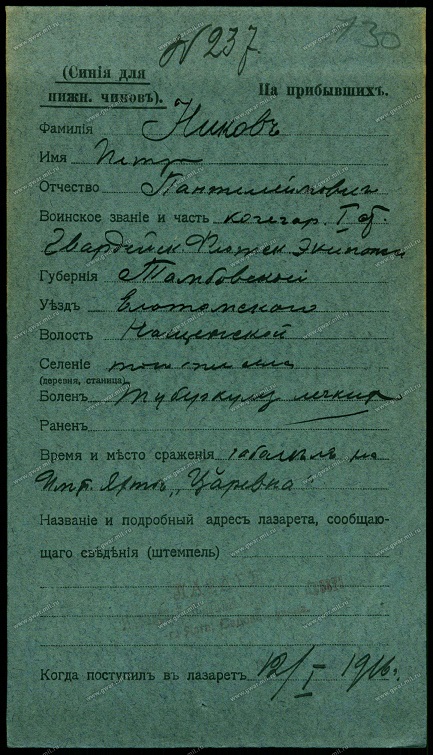 № 237.
130
(Синія для
нижн. чиновъ).
На прибывшихъ.
Фамилія Никовъ
Имя Петр
Отчество Пантелеймович
Воинское званіе и часть кочегар. I ст.
Гвардейск. Флотск Экипажа
Губернія Тамбовской
Уѣздъ Елатомского
Волость
Селеніе
(деревня, станица)
Боленъ туберкулез легких
Раненъ
Время и мѣсто сраженія заболѣлъ на
Имп. Яхтѣ „Царевна"
Названіе и подробный адресъ лазарета, сообщаю-
щаго свѣдѣнія (штемпель)
Когда поступилъ въ лазаретъ 12/I 1916 г.
www.gwar.mil.ru